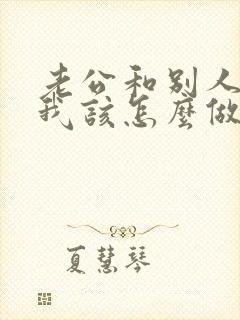 老公和别人
我該怎麼做
夏慧琴